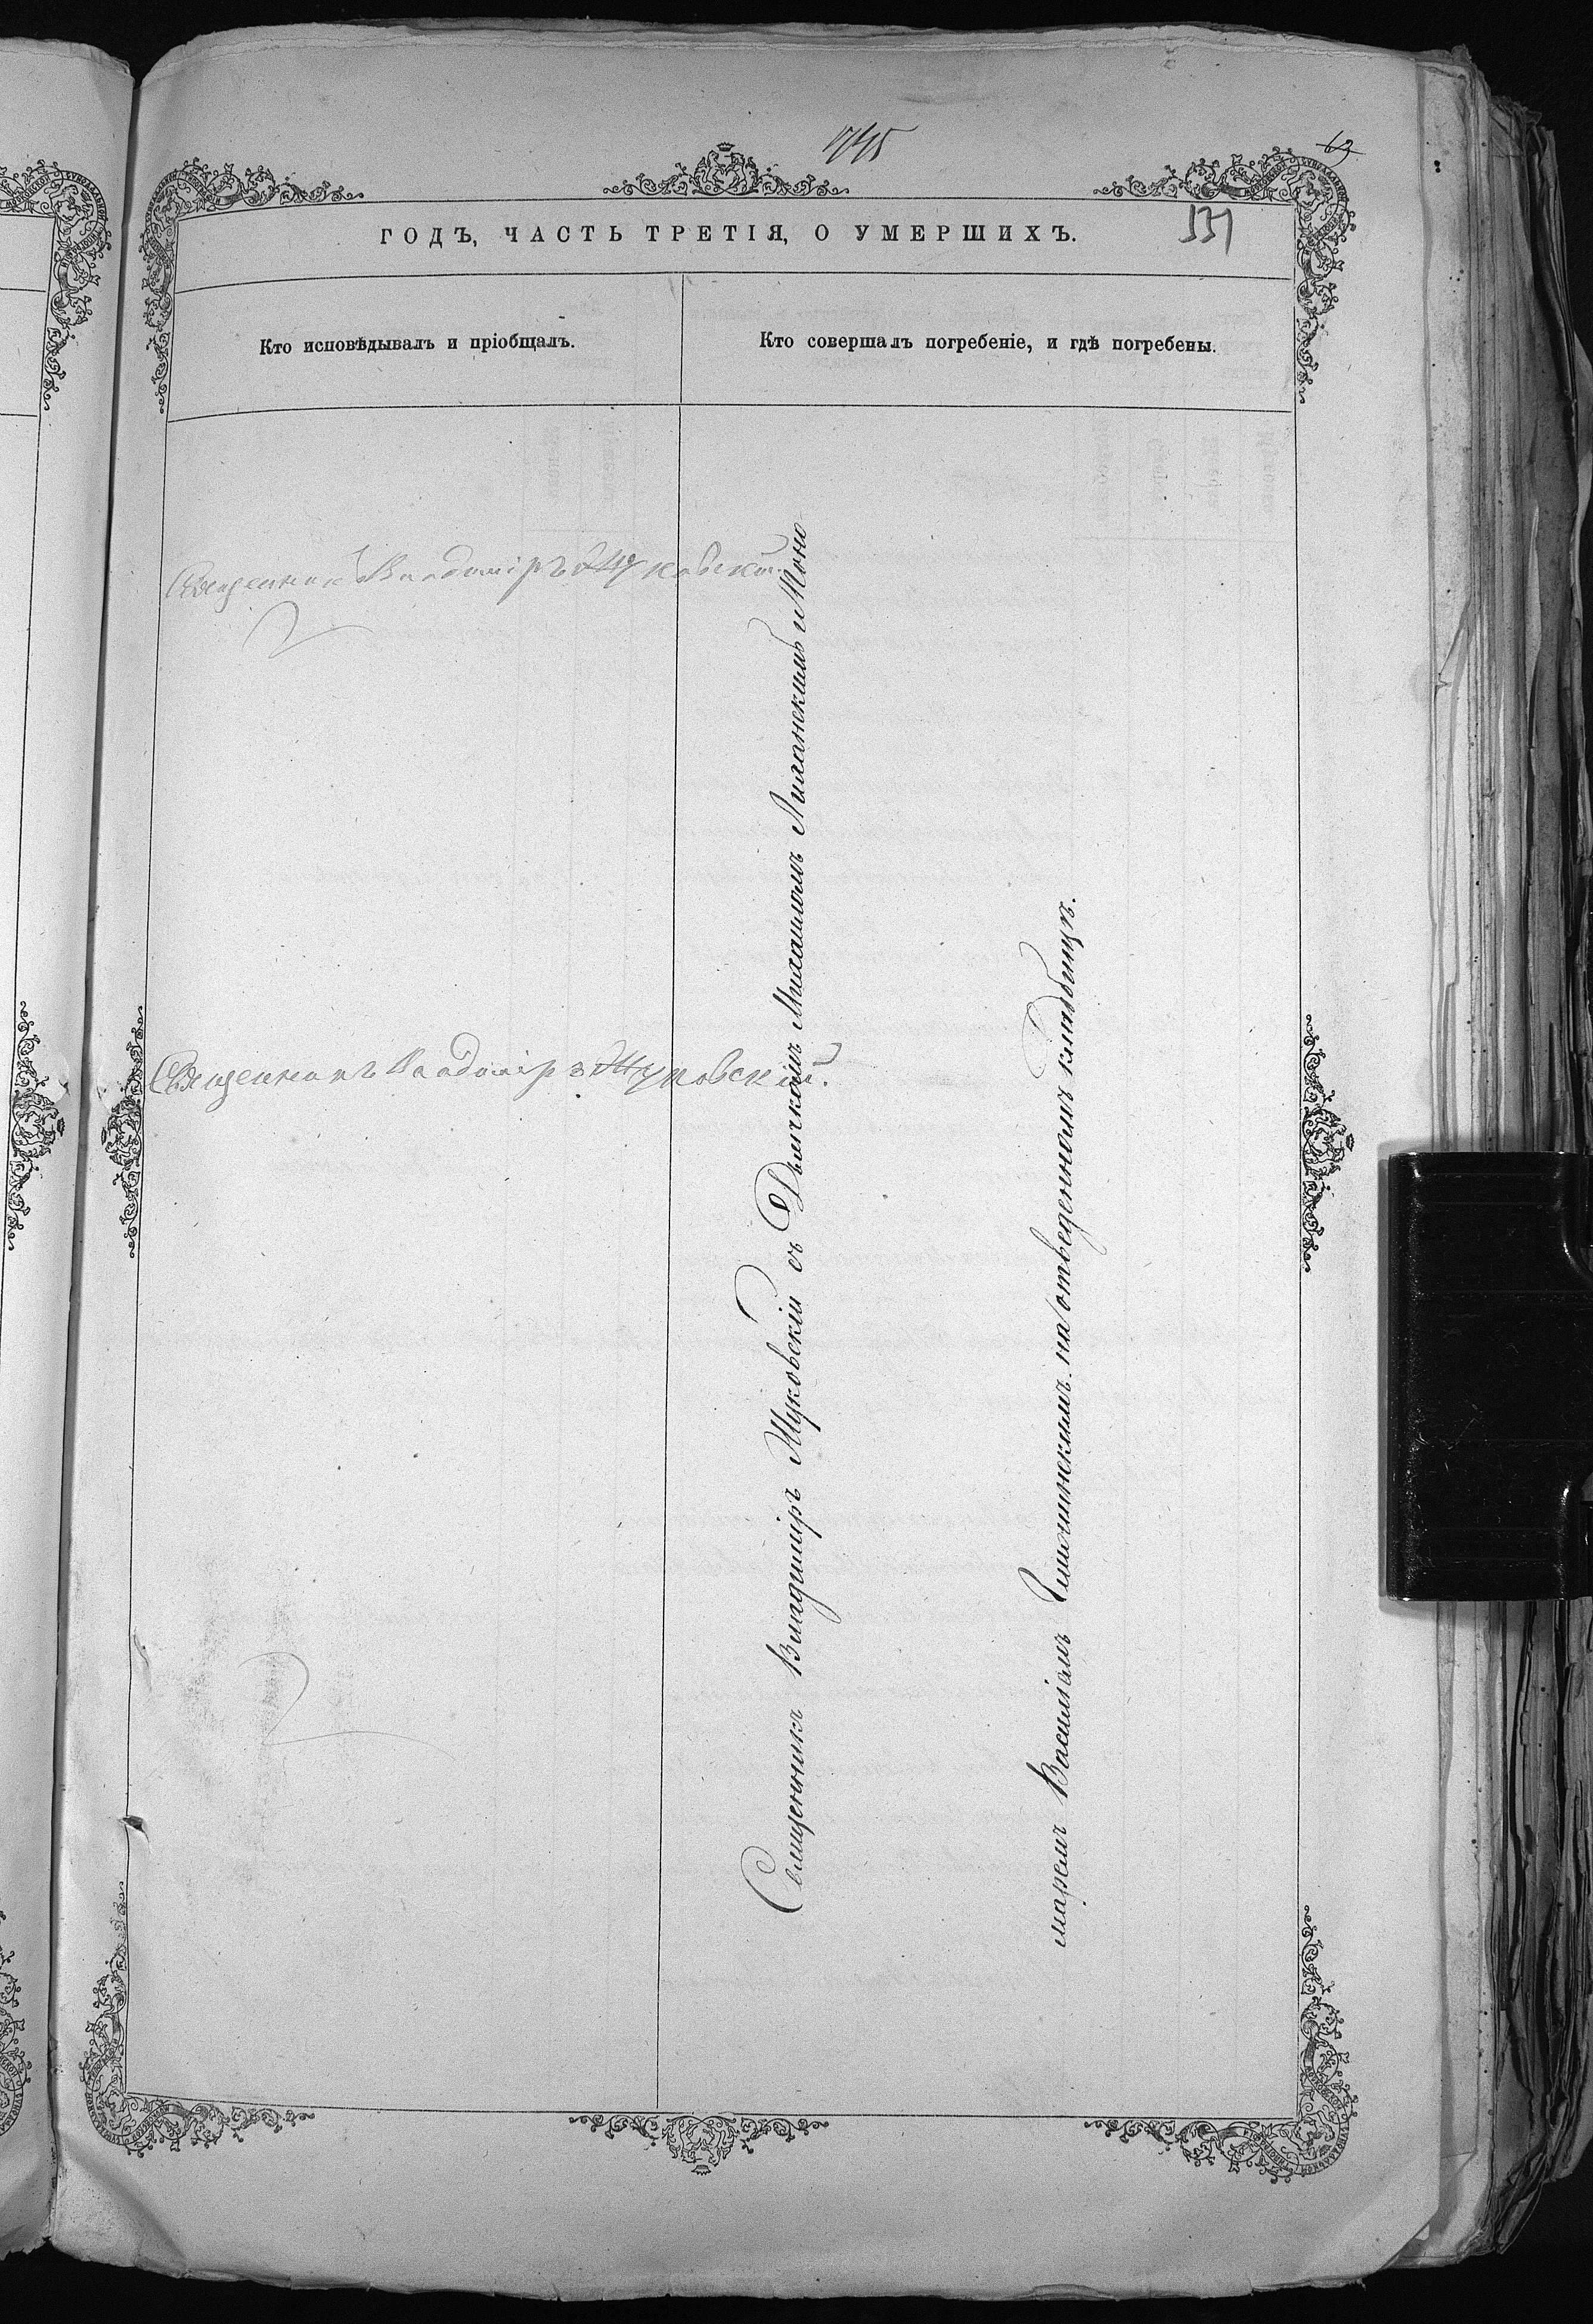 63
331
ГОДЪ, ЧАСТЬ ТРЕТІЯ, О УМЕРШИХЪ.
Кто исповѣдывалъ и пріобщалъ.
Кто совершалъ погребеніе, и гдѣ погребены.
Священникъ Владиміръ Жуковскій.
Священникъ Владиміръ Жуковскій.
Священникъ Владиміръ Жуковскій съ Дьячкомъ Михаиломъ и Поно
маремъ Василіемъ на отведенномъ кладбищѣ.